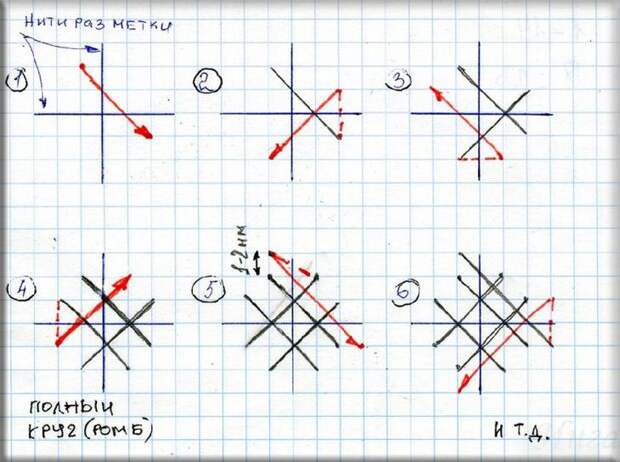 НИТИ РАЗМЕТКИ
1
2
3
4
5
1-2 мм
6
ПОЛНЫЙ
КРУГ (РОМБ)
И Т.Д.